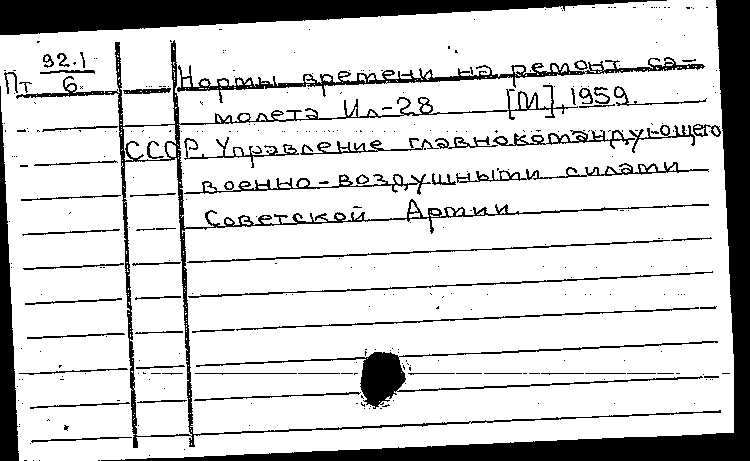 Пт 92.1/6
Нормы времени на ремонт са-
молета Ил-28 [М], 1959.
СССР. Управление главнокомандующего
военно-воздушными силами
Советской Армии.